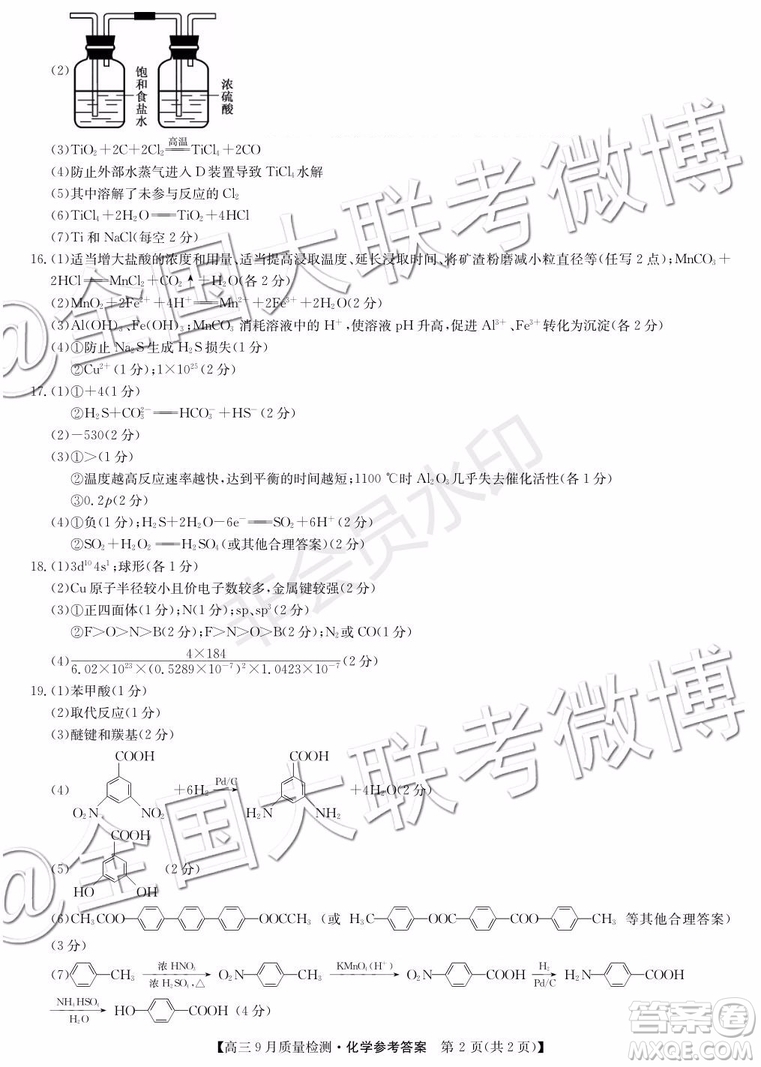 (2)
饱和食盐水
浓硫酸
(3)TiO₂+2C+2Cl₂ ══高温══ TiCl₄+2CO
(4)防止外部水蒸气进入D装置导致TiCl₄水解
(5)其中溶解了未参与反应的Cl₂
(6)TiCl₄+2H₂O══TiO₂+4HCl
(7)Ti和NaCl(每空2分)
16.(1)适当增大盐酸的浓度和用量,适当提高浸取温度,延长浸取时间,将矿渣粉磨减小粒直径等(任写2点);MnCO₃+
2HCl══MnCl₂+CO₂↑+H₂O(各2分)
(2)MnO₂+2Fe²⁺+4H⁺══Mn²⁺+2Fe³⁺+2H₂O(2分)
(3)Al(OH)₃、Fe(OH)₃;MnCO₃消耗溶液中的H⁺,使溶液pH升高,促进Al³⁺、Fe³⁺转化为沉淀(各2分)
(4)①防止Na₂S生成H₂S损失(1分)
②Cu²⁺(1分);1×10²⁵(2分)
17.(1)①+4(1分)
②H₂S+CO₃²⁻══HCO₃⁻+HS⁻(2分)
(2)-530(2分)
(3)①>(1分)
②温度越高反应速率越快,达到平衡的时间越短;1100 ℃时Al₂O₃几乎失去催化活性(各1分)
③0.2p(2分)
(4)①负(1分);H₂S+2H₂O-6e⁻══SO₂+6H⁺(2分)
②SO₂+H₂O══H₂SO₄(或其他合理答案)(2分)
18.(1)3d¹⁰4s¹;球形(各1分)
(2)Cu原子半径较小且价电子数较多,金属键较强(2分)
(3)①正四面体(1分);N(1分);sp、sp³(2分)
②F>O>N>B(2分);F>N>O>B(2分);N₂或CO(1分)
(4) 4×184 / 6.02×10²³×(0.5289×10⁻⁷)²×1.0423×10⁻⁷ (2分)
19.(1)苯甲酸(1分)
(2)取代反应(1分)
(3)醚键和羰基(2分)
(4) COOH O₂N NO₂ +6H₂ Pd/C COOH H₂N NH₂ +4H₂O(2分)
(5) COOH HO OH (2分)
(6)CH₃COO OOCCH₃ (或 H₃C OOC COO CH₃ 等其他合理答案)
(3分)
(7) CH₃ 浓HNO₃ 浓H₂SO₄,△ O₂N CH₃ KMnO₄(H⁺) O₂N COOH H₂ Pd/C H₂N COOH
NH₂HSO₃ H₂O HO COOH (4分)
【高三9月质量检测·化学参考答案 第2页(共2页)】
@全国大联考微博
@全国大联考微博
非会员水印
作业帮
MXQE.COM